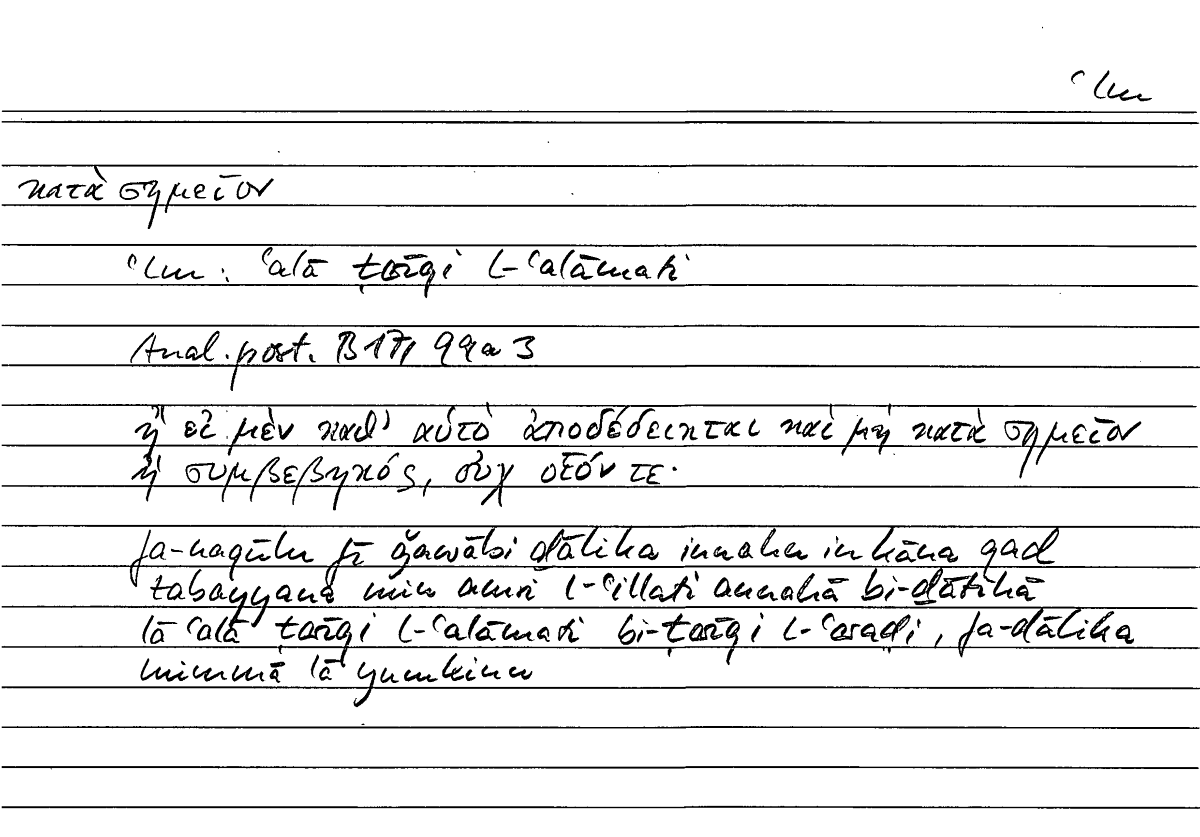 ʿlm
κατὰ σημεῖον
ʿlm: ʿalā ṭarīqi l-ʿalāmati
Anal. post. B 17, 99a3
ἢ εἰ μὲν καθ' αὑτὸ ἀποδέδεικται καὶ μὴ κατὰ σημεῖον
ἢ συμβεβηκός, οὐχ οἷόν τε·
fa-naqūlu fī ǧawābi ḏālika innahu in kāna qad
tabayyana min amri l-ʿillati annahā bi-ḏātihā
lā ʿalā ṭarīqi l-ʿalāmati bi-ṭarīqi l-ʿaraḍi, fa-ḏālika
mimmā lā yumkinu